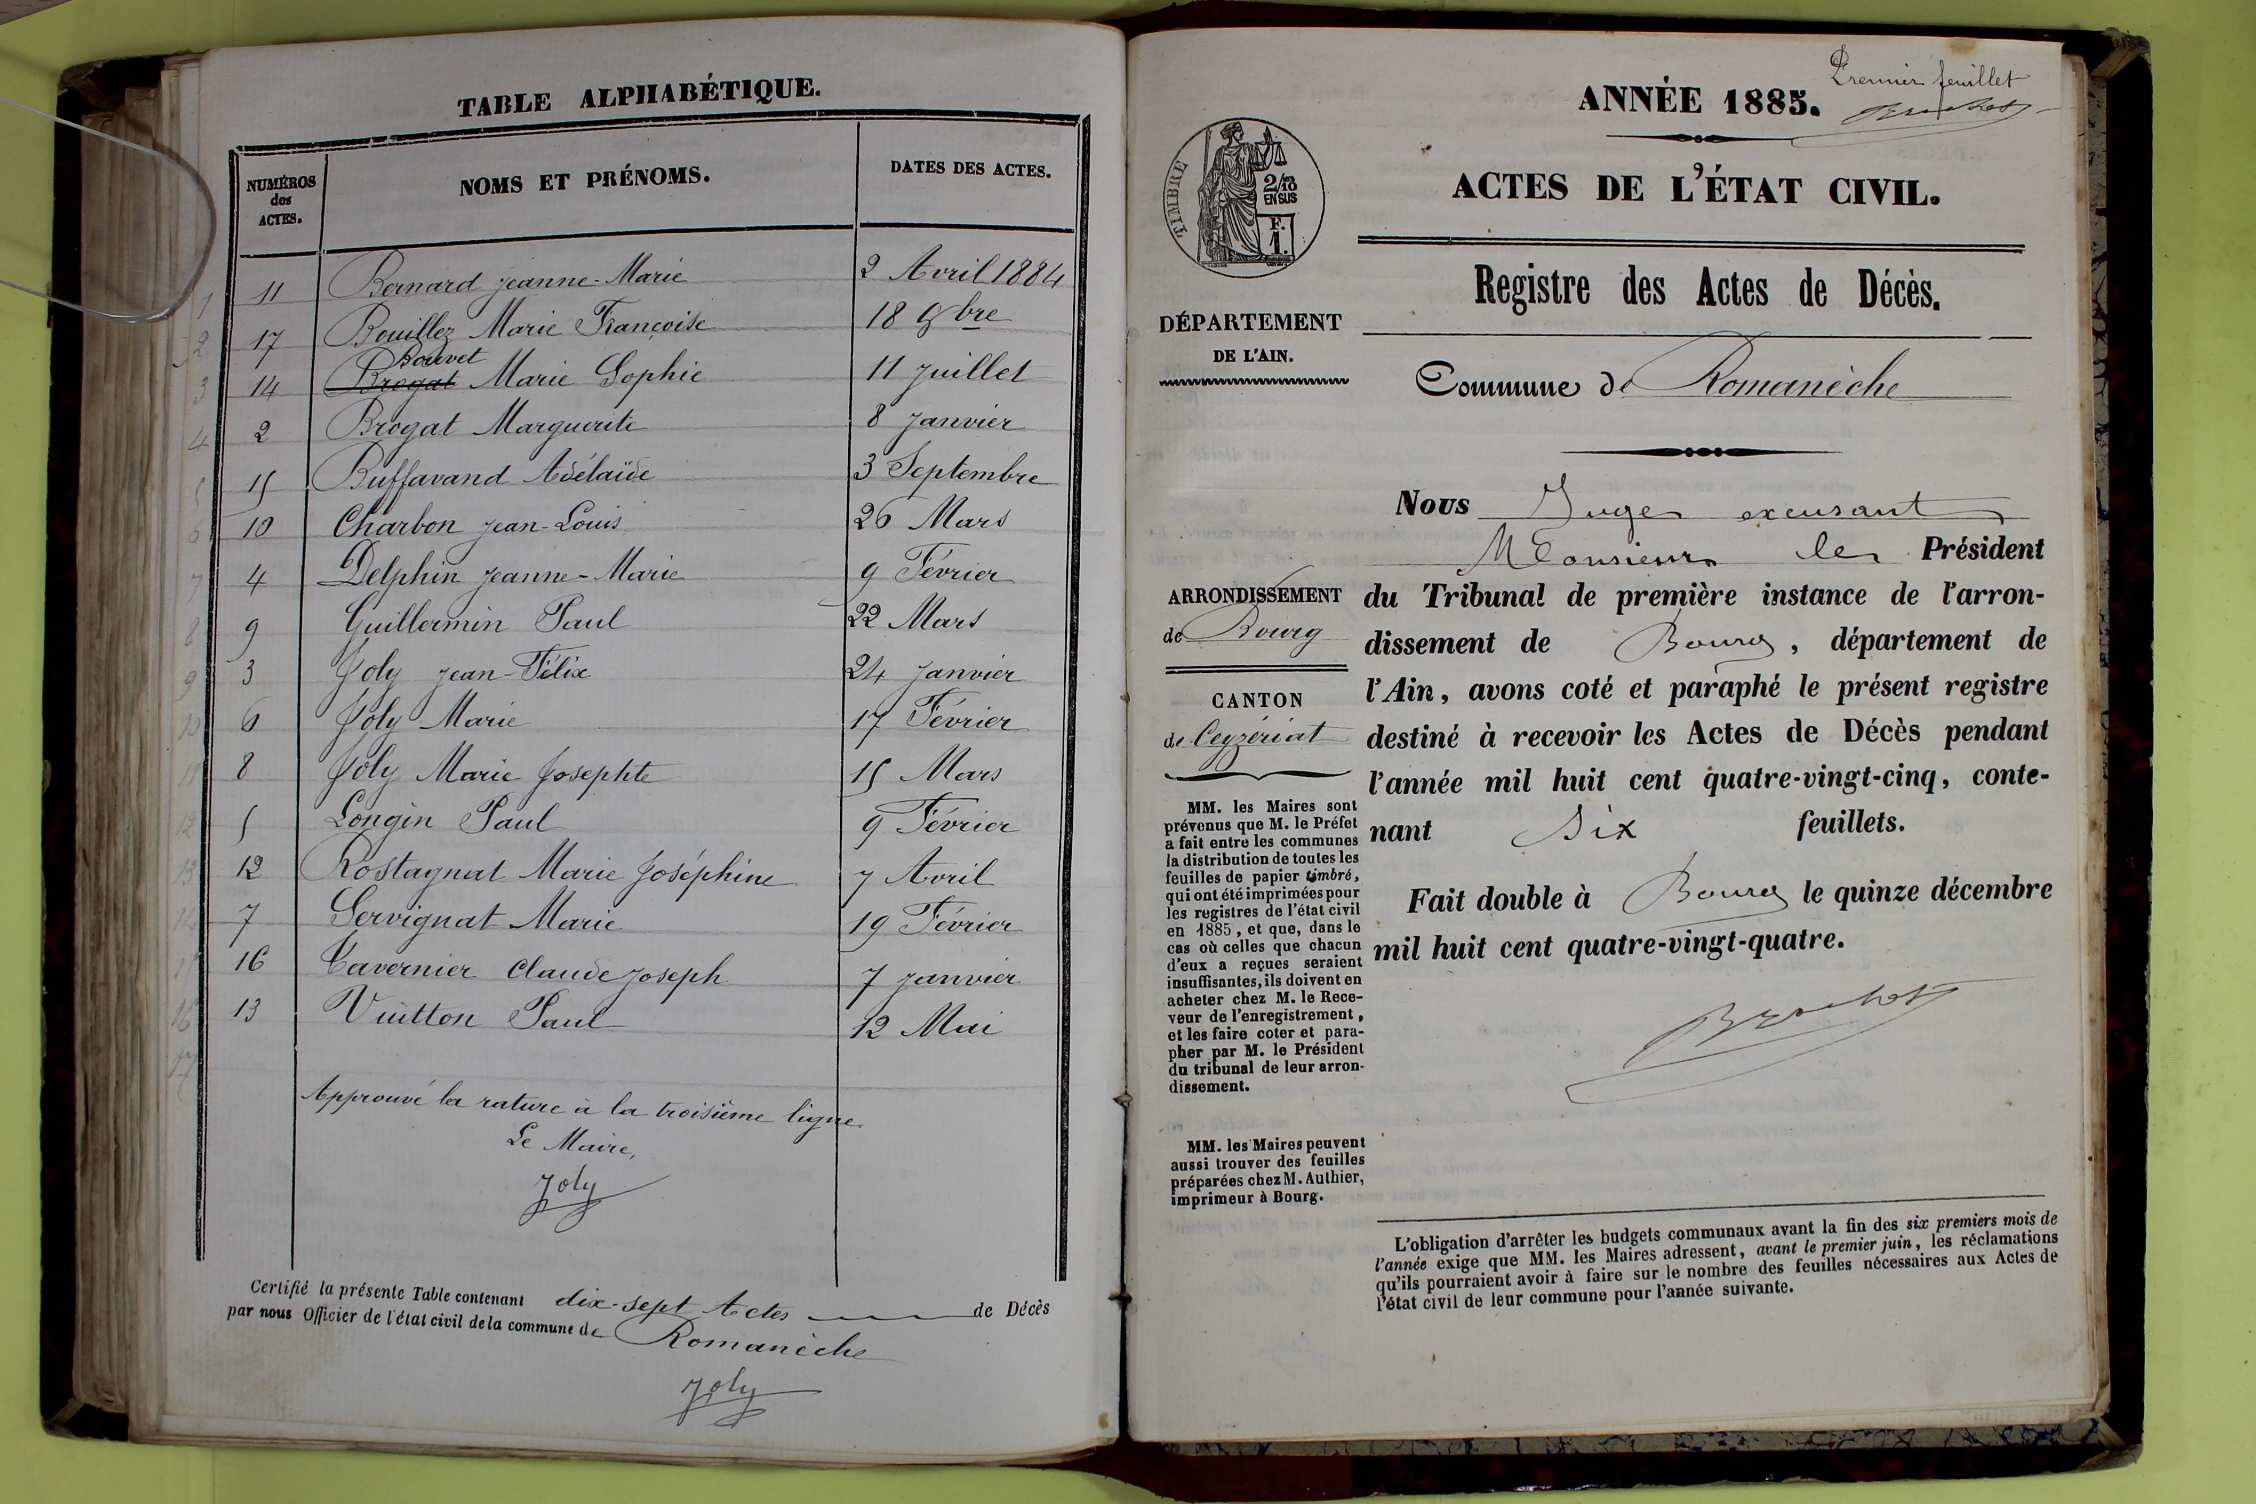 TABLE ALPHABÉTIQUE.
NUMÉROS des ACTES. NOMS ET PRÉNOMS. DATES DES ACTES.
11 Bernard Jeanne-Marie 2 Avril 1884
17 Bouillez Marie Françoise 18 9bre
Bouvet
14 Brogat Marie Sophie 11 Juillet
2 Brogat Marguerite 8 Janvier
15 Buffavand Adélaïde 3 Septembre
10 Charbon Jean-Louis 26 Mars
4 Delphin Jeanne-Marie 9 Février
9 Guillermin Paul 22 Mars
3 Joly Jean-Félix 24 Janvier
6 Joly Marie 17 Février
8 Joly Marie Josephte 15 Mars
5 Longin Paul 9 Février
12 Rostagnat Marie Joséphine 7 Avril
7 Servignat Marie 19 Février
16 Tavernier Claude Joseph 7 Janvier
13 Vuitton Paul 12 Mai
1
2
3
4
5
6
7
8
9
10
11
12
13
14
15
16
17
Approuvé la rature à la troisième ligne.
Le Maire,
Joly
Certifié la présente Table contenant dix-sept Actes de Décès
par nous Officier de l'état civil de la commune de Romanèche
Joly
Premier feuillet
Brochet
ANNÉE 1885.
ACTES DE L'ÉTAT CIVIL.
TIMBRE
2/10
EN SUS
F.
1.
Registre des Actes de Décès.
DÉPARTEMENT
DE L'AIN.
Commune de Romanèche
Nous Juge excusant
Monsieur le Président
du Tribunal de première instance de l'arron-
dissement de Bourg, département de
l'Ain, avons coté et paraphé le présent registre
destiné à recevoir les Actes de Décès pendant
l'année mil huit cent quatre-vingt-cinq, conte-
nant Six feuillets.
Fait double à Bourg le quinze décembre
mil huit cent quatre-vingt-quatre.
Brochet
ARRONDISSEMENT
de Bourg
CANTON
de Ceyzériat
MM. les Maires sont
prévenus que M. le Préfet
a fait entre les communes
la distribution de toutes les
feuilles de papier timbré,
qui ont été imprimées pour
les registres de l'état civil
en 1885, et que, dans le
cas où celles que chacun
d'eux a reçues seraient
insuffisantes, ils doivent en
acheter chez M. le Rece-
veur de l'enregistrement,
et les faire coter et para-
pher par M. le Président
du tribunal de leur arron-
dissement.
MM. les Maires peuvent
aussi trouver des feuilles
préparées chez M. Authier,
imprimeur à Bourg.
L'obligation d'arrêter les budgets communaux avant la fin des six premiers mois de
l'année exige que MM. les Maires adressent, avant le premier juin, les réclamations
qu'ils pourraient avoir à faire sur le nombre des feuilles nécessaires aux Actes de
l'état civil de leur commune pour l'année suivante.